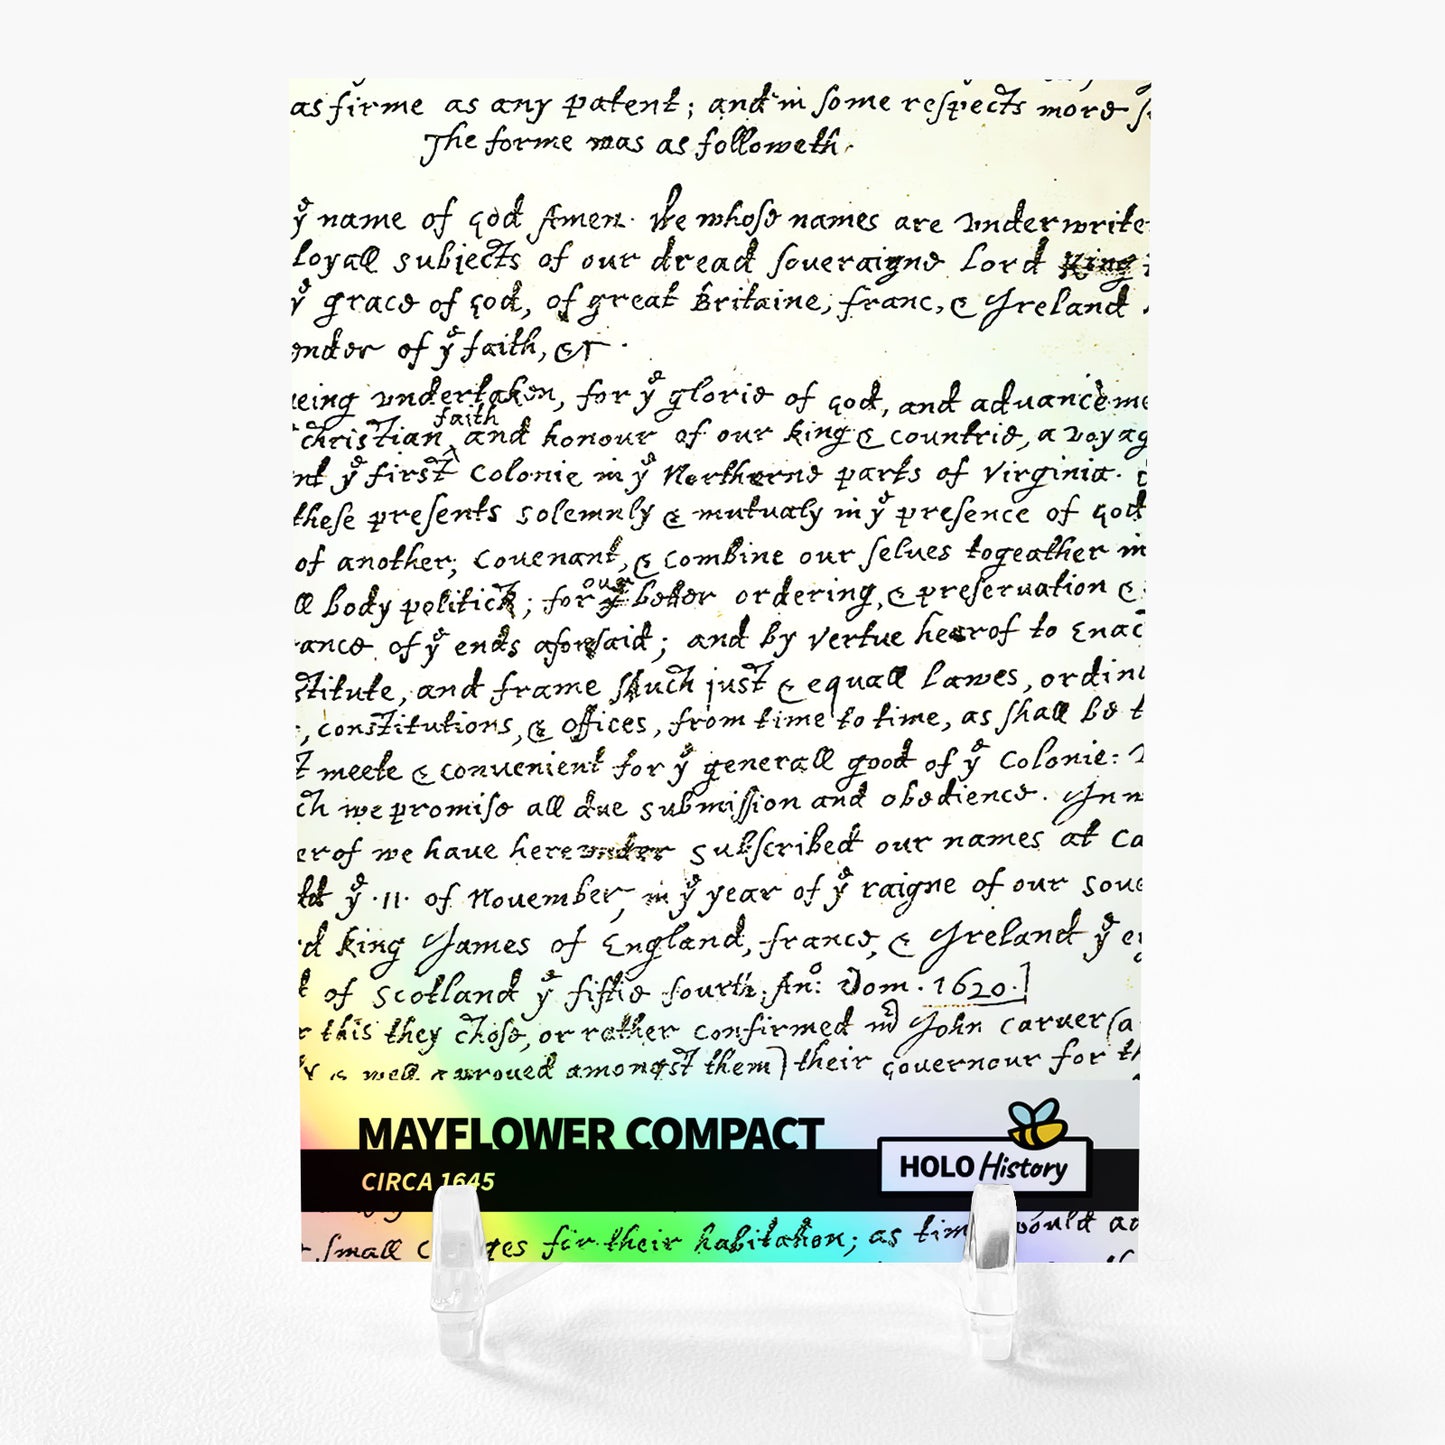 as firme as any patent; and in some respects more s
The forme was as followeth.
yͤ name of god Amen. We whose names are underwrite
loyall subjects of our dread soveraigne Lord King
yͤ grace of god, of great Britaine, franc, & Ireland
ender of yͤ faith, &c.
veing undertaken, for yͤ glorie of god, and advanceme
faith
christian ^ and honour of our king & countrie, a voyag
nt yͤ first colonie in yͤ Northerne parts of Virginia.
these presents solemnly & mutualy in yͤ presence of god
of another; covenant, & combine our selves togeather in
our
ll body politick; for yͤ better ordering, & preservation &
rance of yͤ ends aforesaid; and by vertue hearof to Enac
stitute, and frame shuch just & equall lawes, ordin
, constitutions, & offices, from time to time, as shall be t
t meete & convenient for yͤ generall good of yͤ Colonie:
ch we promise all due submission and obedience. In w
erof we have hereunder subscribed our names at Ca
dd yͤ .11. of November, in yͤ year of yͤ raigne of our sove
rd king James of England, france, & Ireland yͤ e
t of Scotland yͤ fiftie fourth. Anͦ: Dom. 1620.]
r this they chose, or rather confirmed mͬ John Carver (a
& well approved amongst them) their governour for th
MAYFLOWER COMPACT
CIRCA 1645
HOLO History
small cotages for their habitation; as time would ad